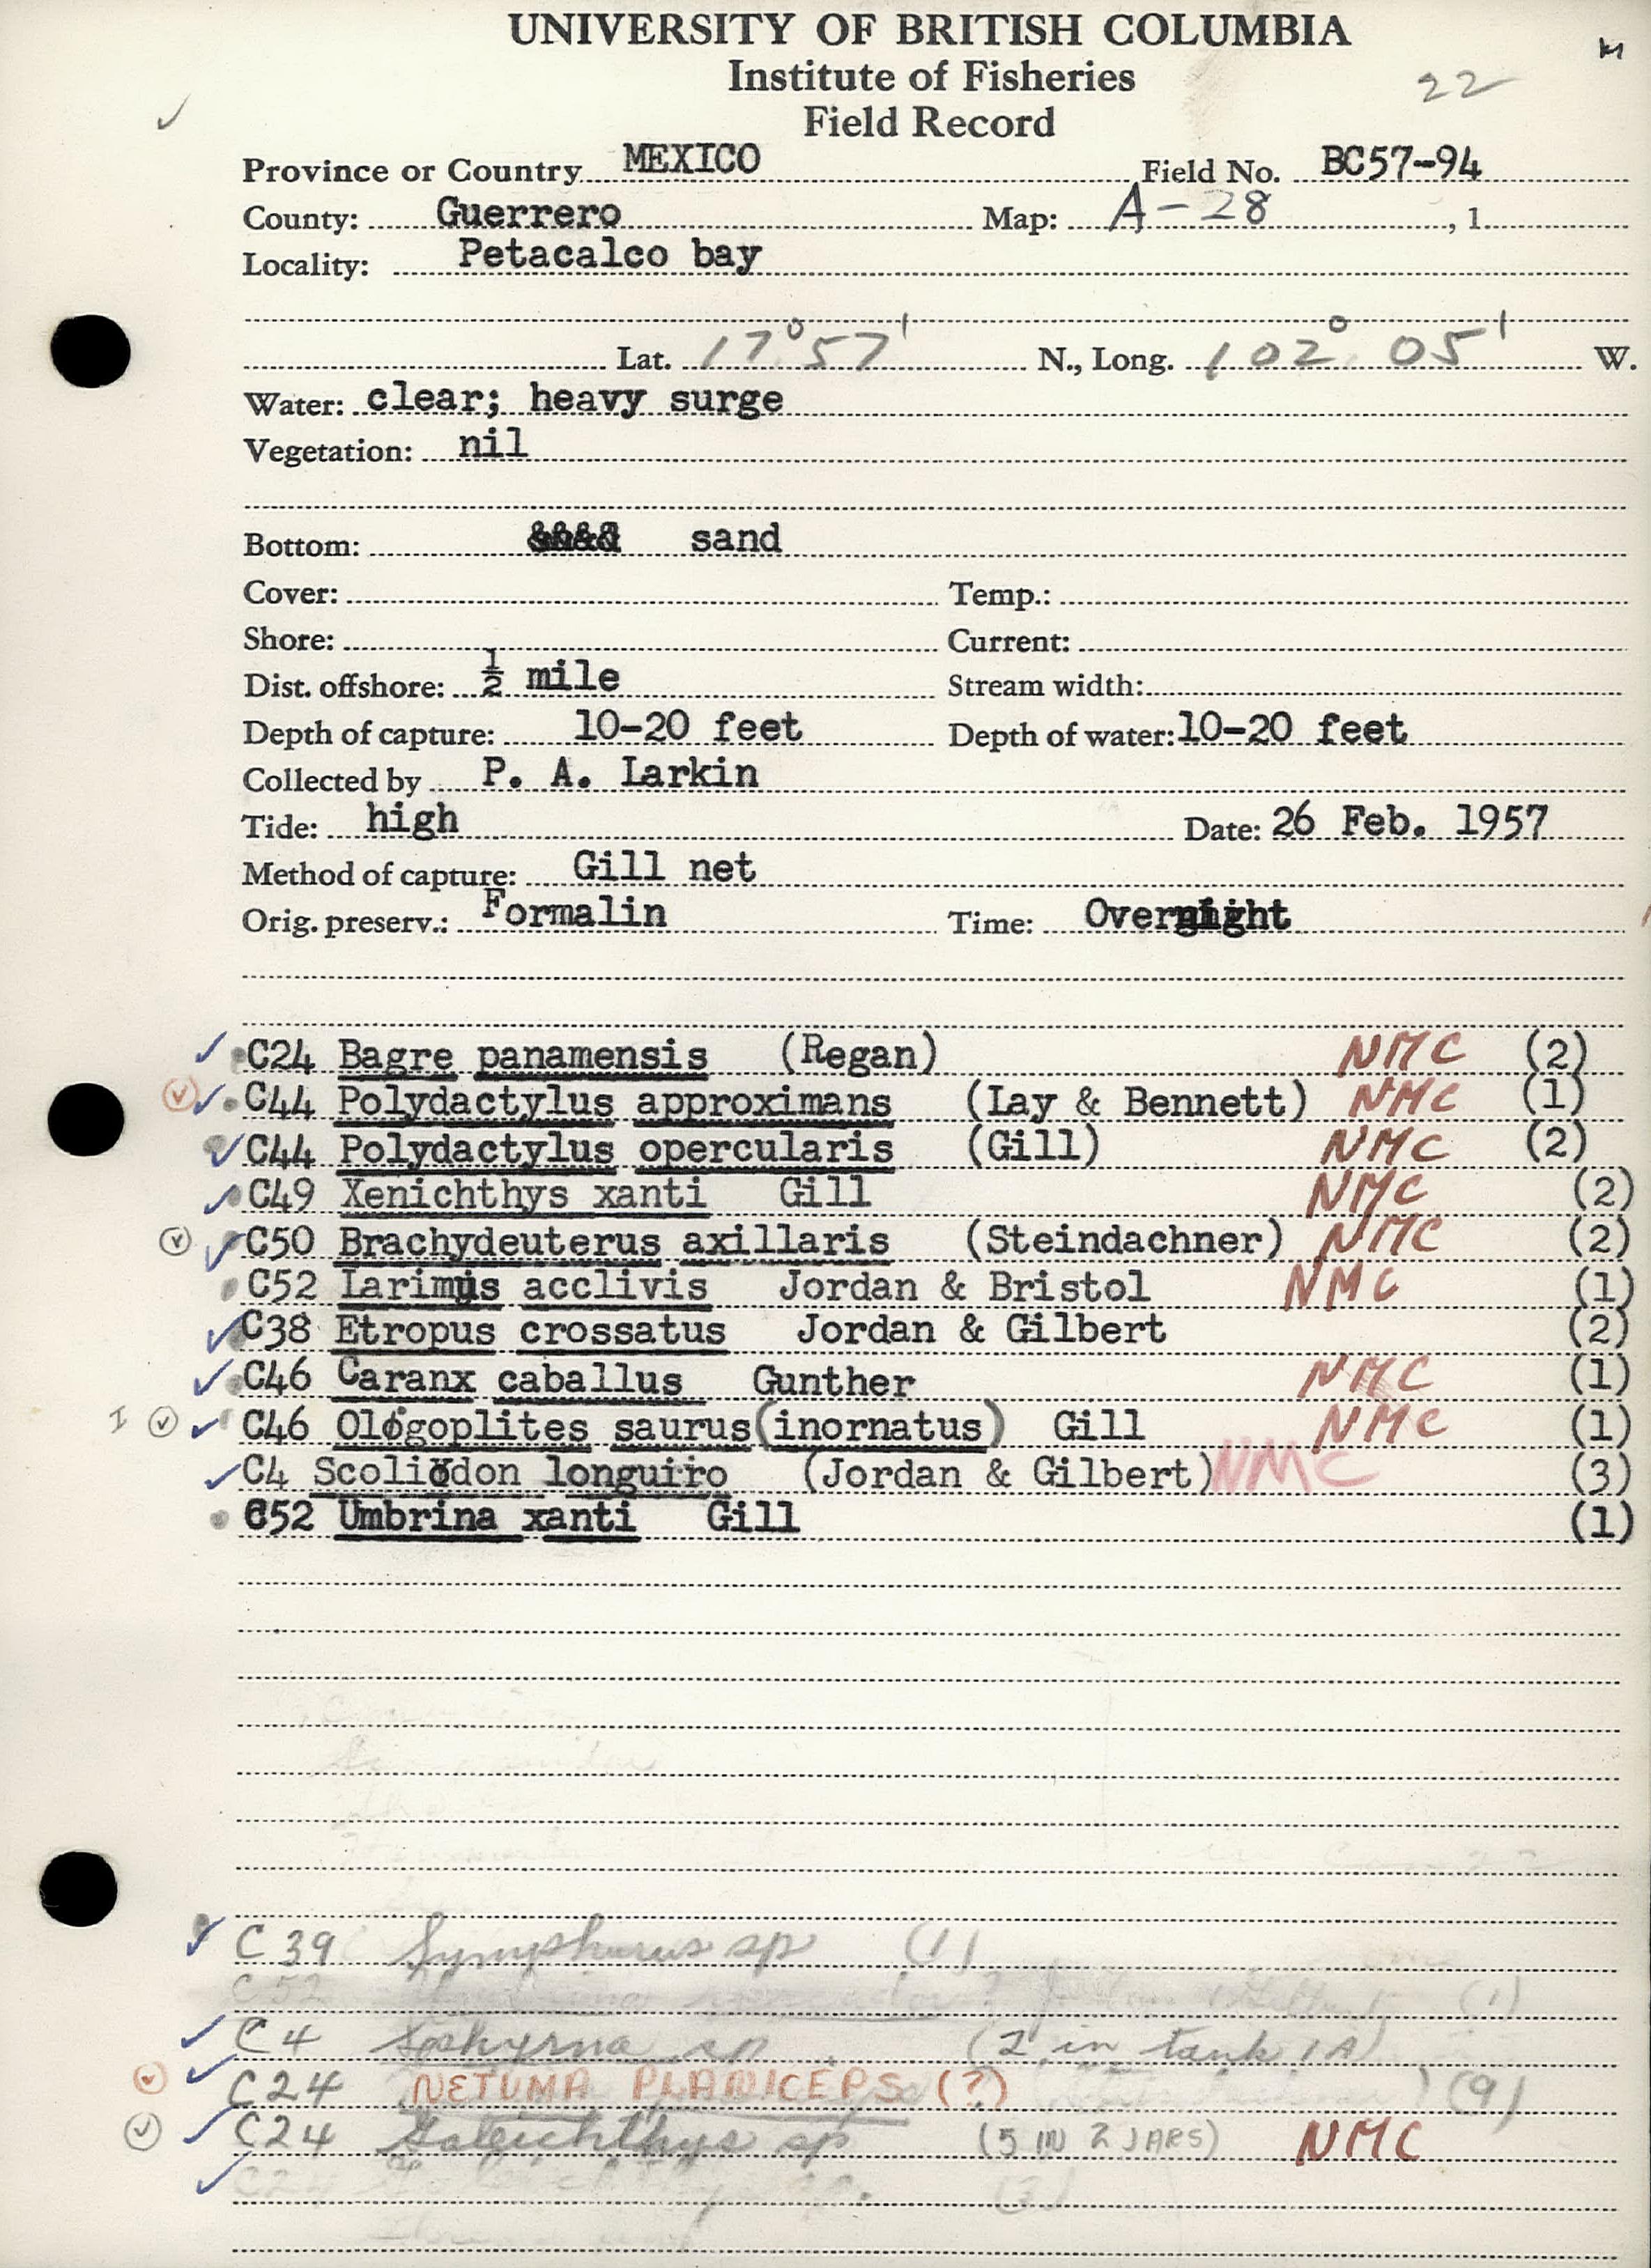 UNIVERSITY OF BRITISH COLUMBIA
Institute of Fisheries
22
Field Record
Province or Country MEXICO Field No. BC57-94
County: Guerrero Map: A-28 , 1
Locality: Petacalco bay
Lat. 17°57' N., Long. 102° 05' W.
Water: clear; heavy surge
Vegetation: nil
Bottom: sand
Cover: Temp.:
Shore: Current:
Dist. offshore: ½ mile Stream width:
Depth of capture: 10-20 feet Depth of water: 10-20 feet
Collected by P. A. Larkin
Tide: high Date: 26 Feb. 1957
Method of capture: Gill net
Orig. preserv.: Formalin Time: Overnight
✓ C24 Bagre panamensis (Regan) NMC (2)
✓ ✓ C44 Polydactylus approximans (Lay & Bennett) NMC (1)
✓ C44 Polydactylus opercularis (Gill) NMC (2)
✓ C49 Xenichthys xanti Gill NMC (2)
✓ ✓ C50 Brachydeuterus axillaris (Steindachner) NMC (2)
C52 Larimus acclivis Jordan & Bristol NMC (1)
✓ C38 Etropus crossatus Jordan & Gilbert (2)
✓ C46 Caranx caballus Gunther NMC (1)
I ✓ ✓ C46 Oligoplites saurus(inornatus) Gill NMC (1)
✓ C4 Scoliodon longuiro (Jordan & Gilbert) NMC (3)
C52 Umbrina xanti Gill (1)
✓ C39 Symphurus sp (1)
C52 (1)
✓ C4 Sphyrna sp (2 in tank 1A)
✓ ✓ C24 NETUMA PLANICEPS (?) (9)
✓ ✓ C24 Galeichthys sp (5 IN 2 JARS) NMC
✓ C24 sp. (3)